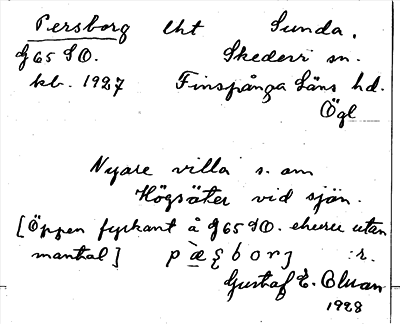 Persborg lht Sunda.
G65 SO. Skedevi sn.
kb. 1927 Finspånga Läns hd.
Ögl
Nyare villa s. om
Högsäter vid sjön.
[Öppen fyrkant å G65 SO. ehuru utan
mantal] :r.
Gustaf E.
1928